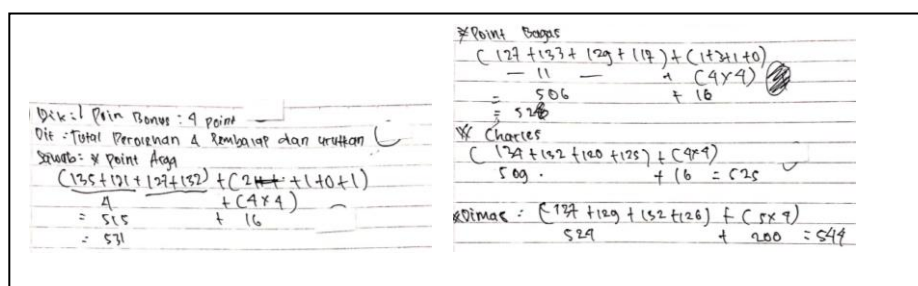 Dik : 1 Poin Bonus : 4 point
Dit : Total Perolehan 4 Pembalap dan urutkan
Jawab : * Point Arga
(135+121+127+132) + (2 +1+0+1)
4 + (4x4)
= 515 + 16
= 531
* Point Bagas
(127+133+129+117) + (1+3+1+0)
— 11 — + (4x4)
= 506 + 16
= 528
* Charles
(134+132+120+125) + (4x4)
509. + 16 = 525
* Dimas : (137+129+132+126) + (5x4)
524 + 200 = 544